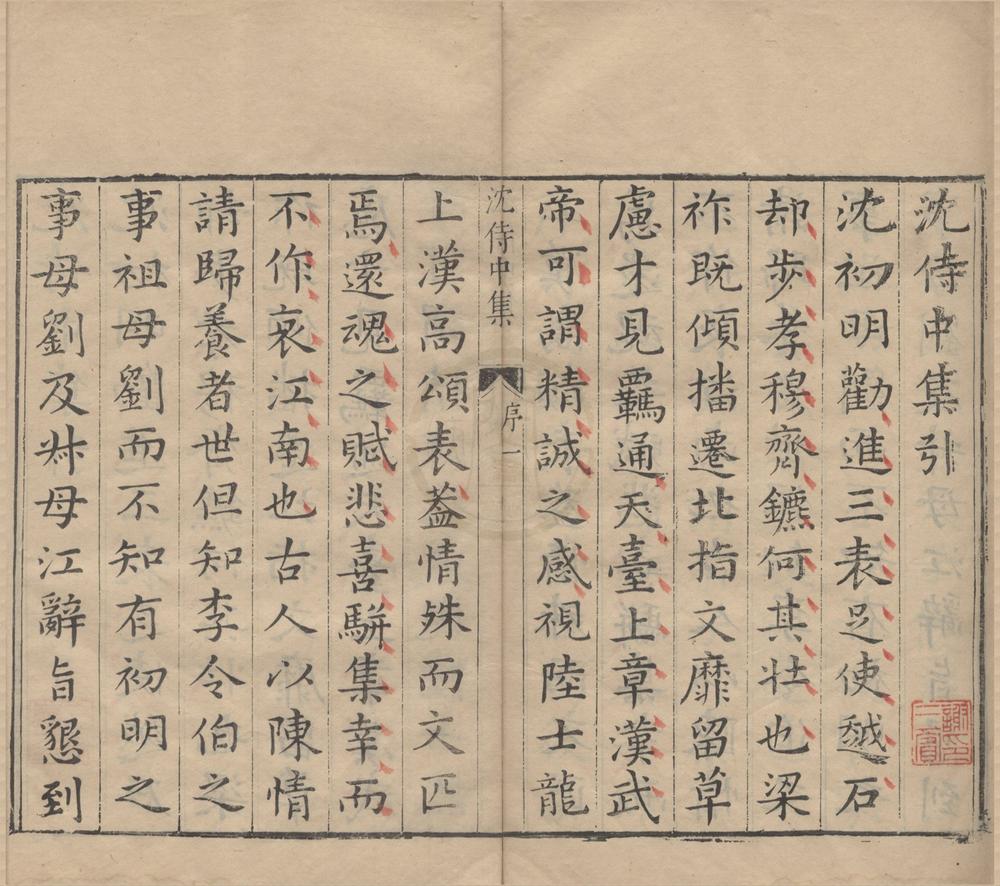 沈侍中集引
沈初明勸進三表足使越石
却步孝穆齊鑣何其壯也梁
祚既傾播遷北指文靡留草
慮才見羈通天臺上章漢武
帝可謂精誠之感視陸士龍
沈侍中集
序
一
上漢高頌表葢情殊而文匹
焉還魂之賦悲喜駢集幸而
不作哀江南也古人以陳情
請歸養者世但知李令伯之
事祖母劉而不知有初明之
事母劉及叔母江辭旨懇到